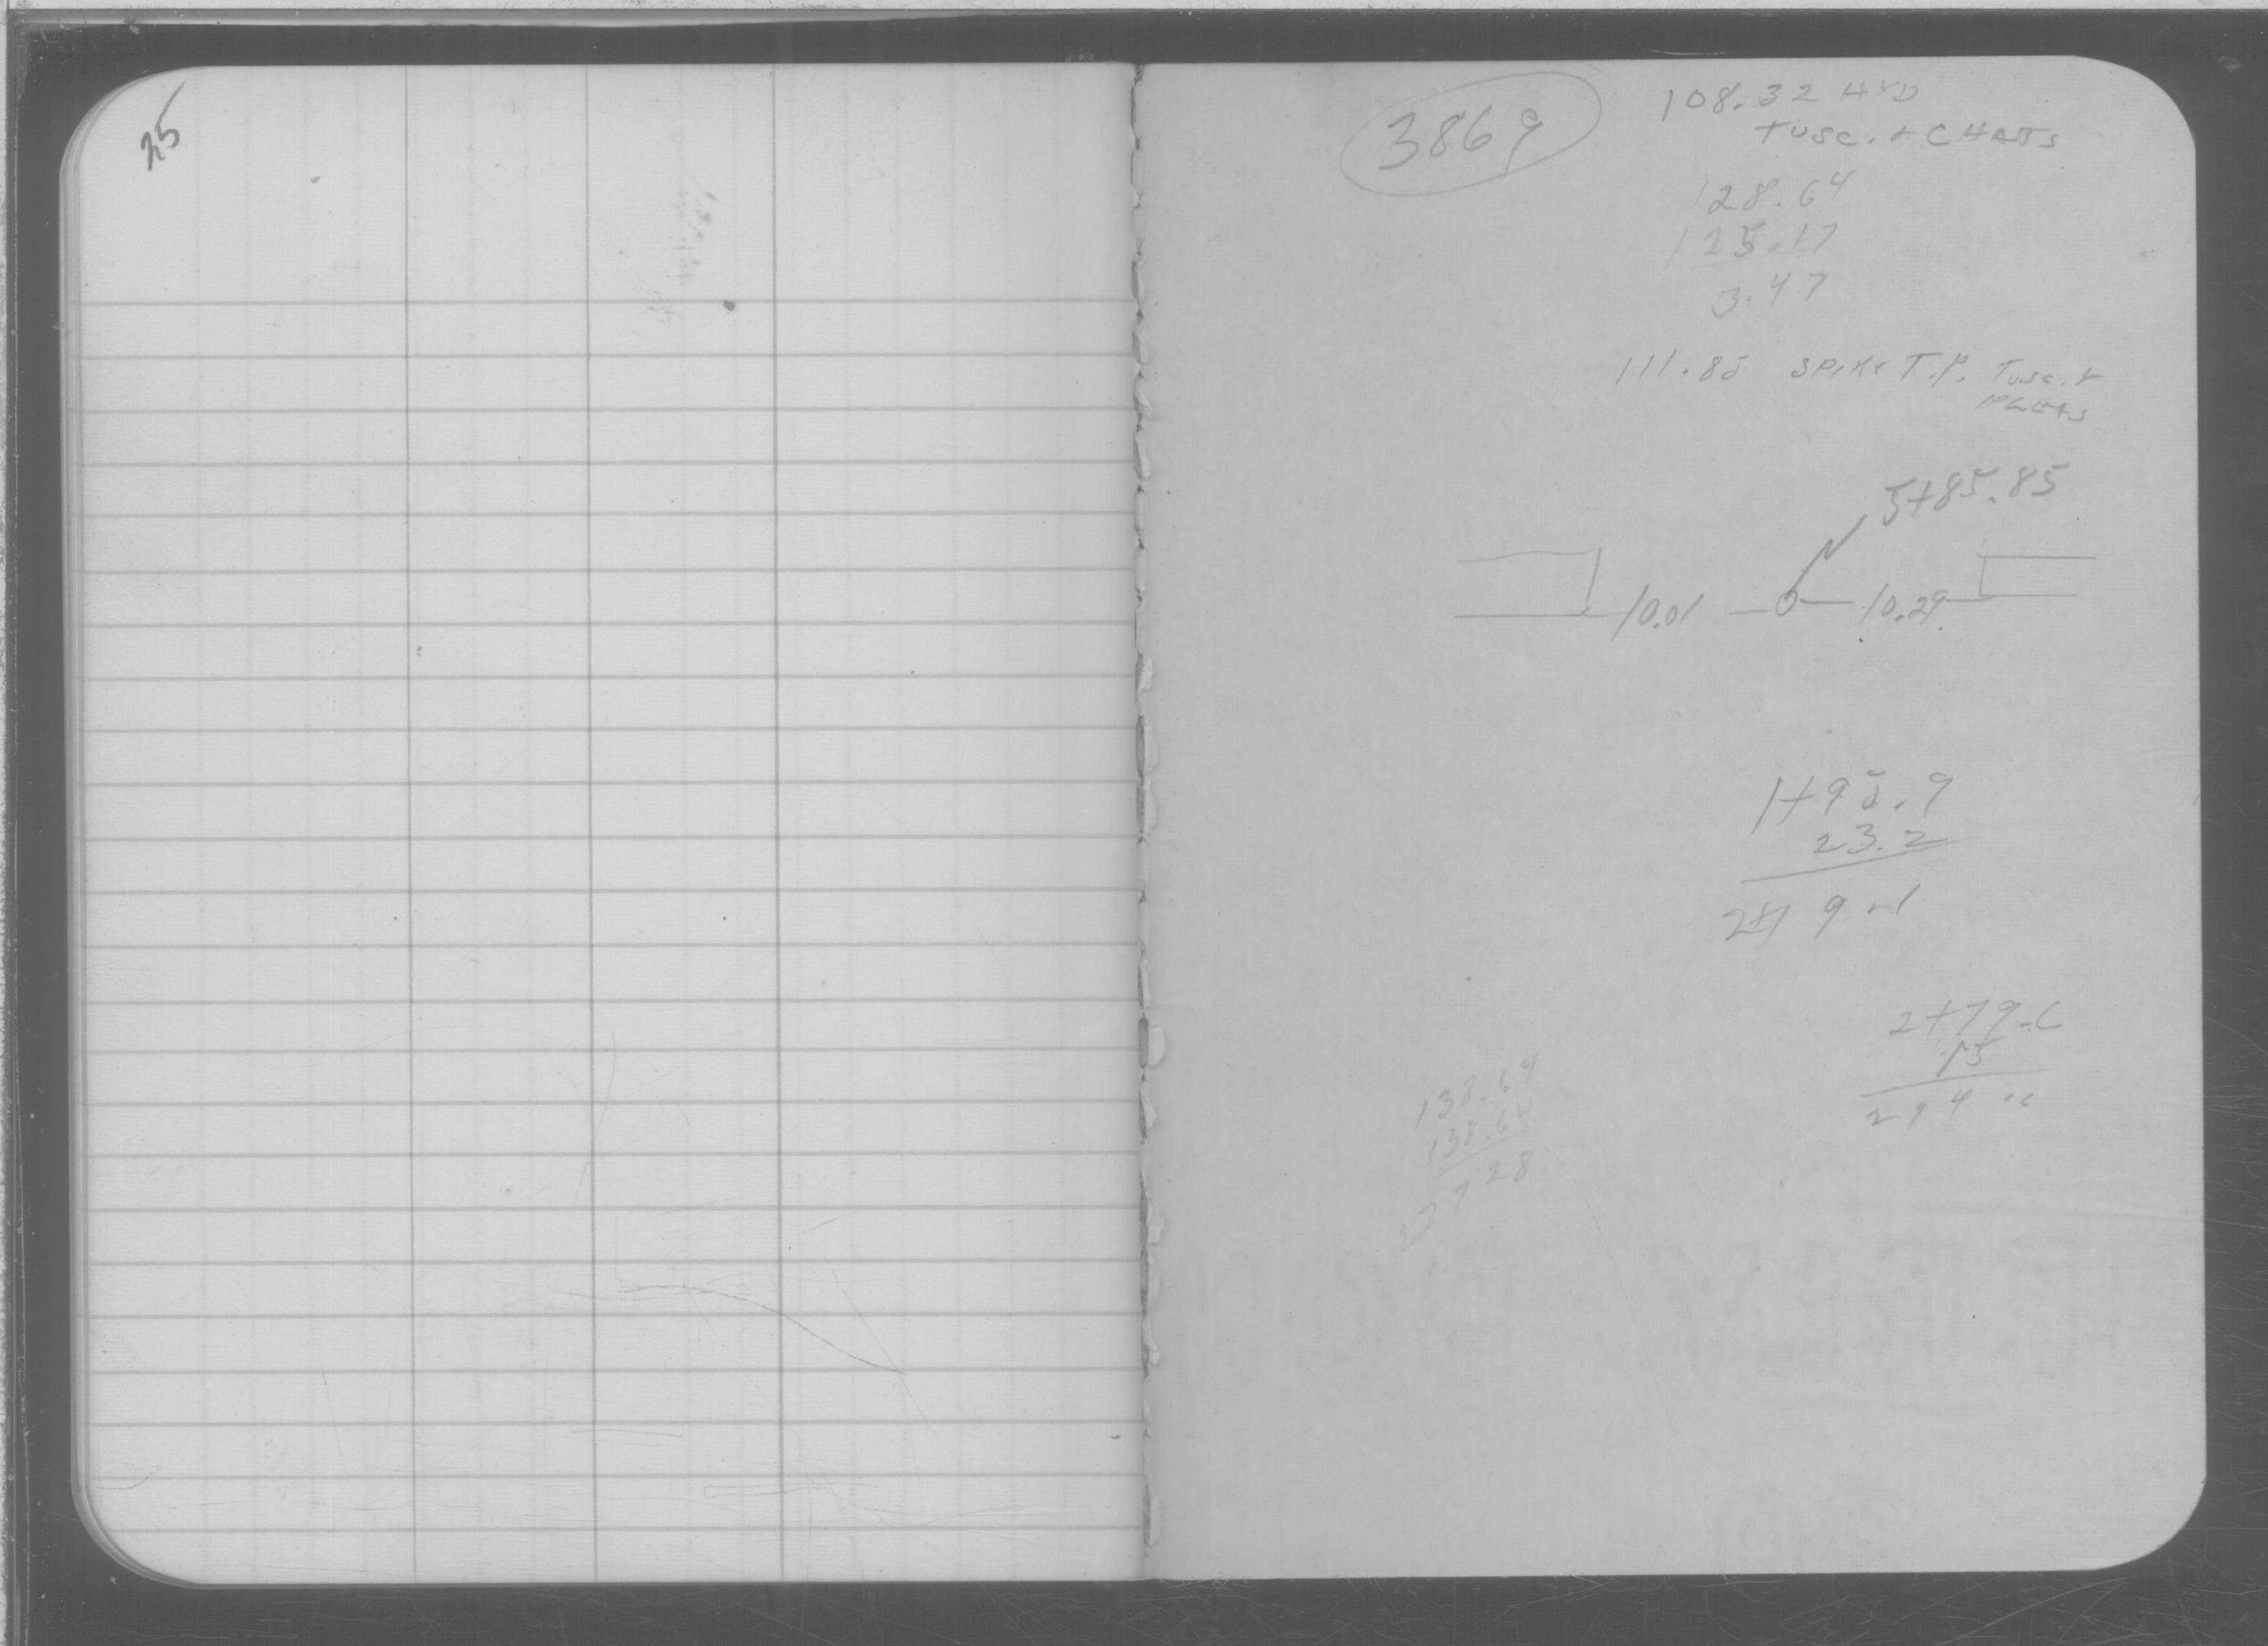 25
3869
108.32 HYD
TUSC. & CHATS
128.64
125.17
3.47
111.85 SPIKE T.P. TUSC. &
PLEAS
5+85.85
10.01
10.29
1+95.9
23.2
2+19.1
2+79.6
15
294.6
138.64
138.64
277 28